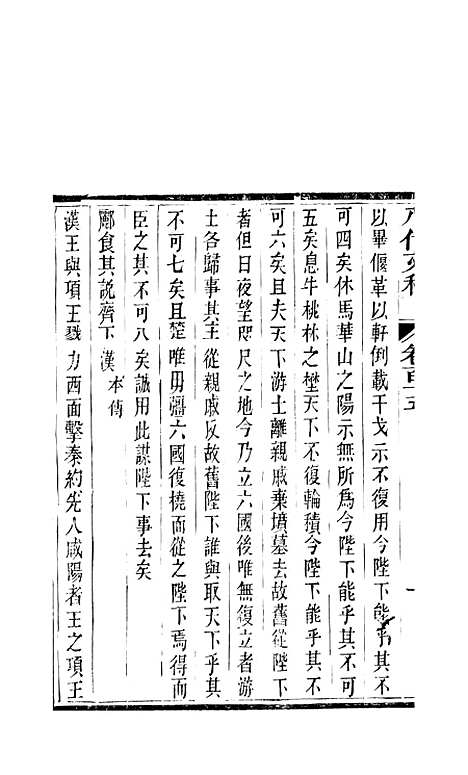 八代文粹 卷百五 一
以畢偃革以軒倒載干戈示不復用今陛下能乎其不
可四矣休馬華山之陽示無所爲今陛下能乎其不可
五矣息牛桃林之埜天下不復輸積今陛下能乎其不
可六矣且夫天下游士離親戚棄墳墓去故舊從陛下
者但日夜望咫尺之地今乃立六國後唯無復立者游
士各歸事其主從親戚反故舊陛下誰與取天下乎其
不可七矣且楚唯毋彊六國復橈而從之陛下焉得而
臣之其不可八矣誠用此謀陛下事去矣
酈食其說齊下 漢 本傳
漢王與項王戮力西面擊秦約先入咸陽者王之項王